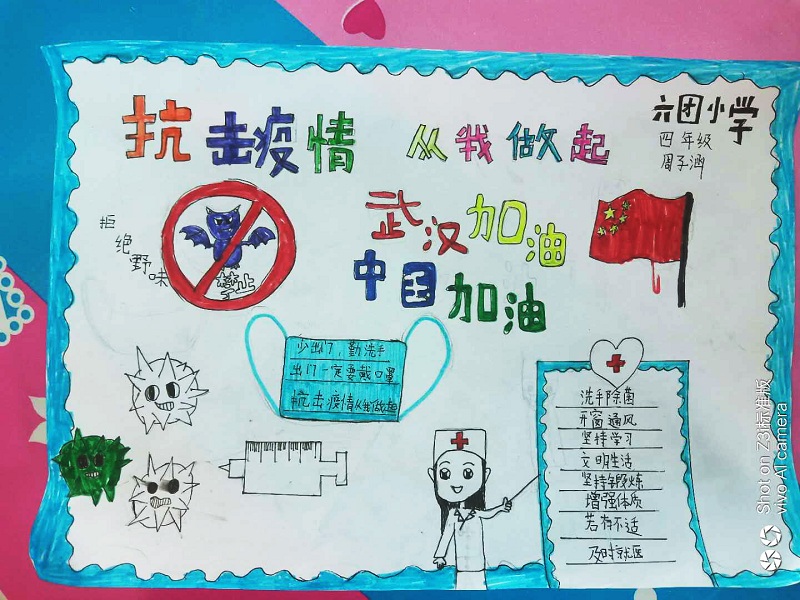 抗击疫情 从我做起
六团小学
四年级
周子涵
拒绝野味
禁止
武汉加油
中国加油
少出门,勤洗手
出门一定要戴口罩
抗击疫情从我做起
洗手除菌
开窗通风
坚持学习
文明生活
坚持锻炼
增强体质
若有不适
及时就医
Shot on Z3标准版
vivo AI camera